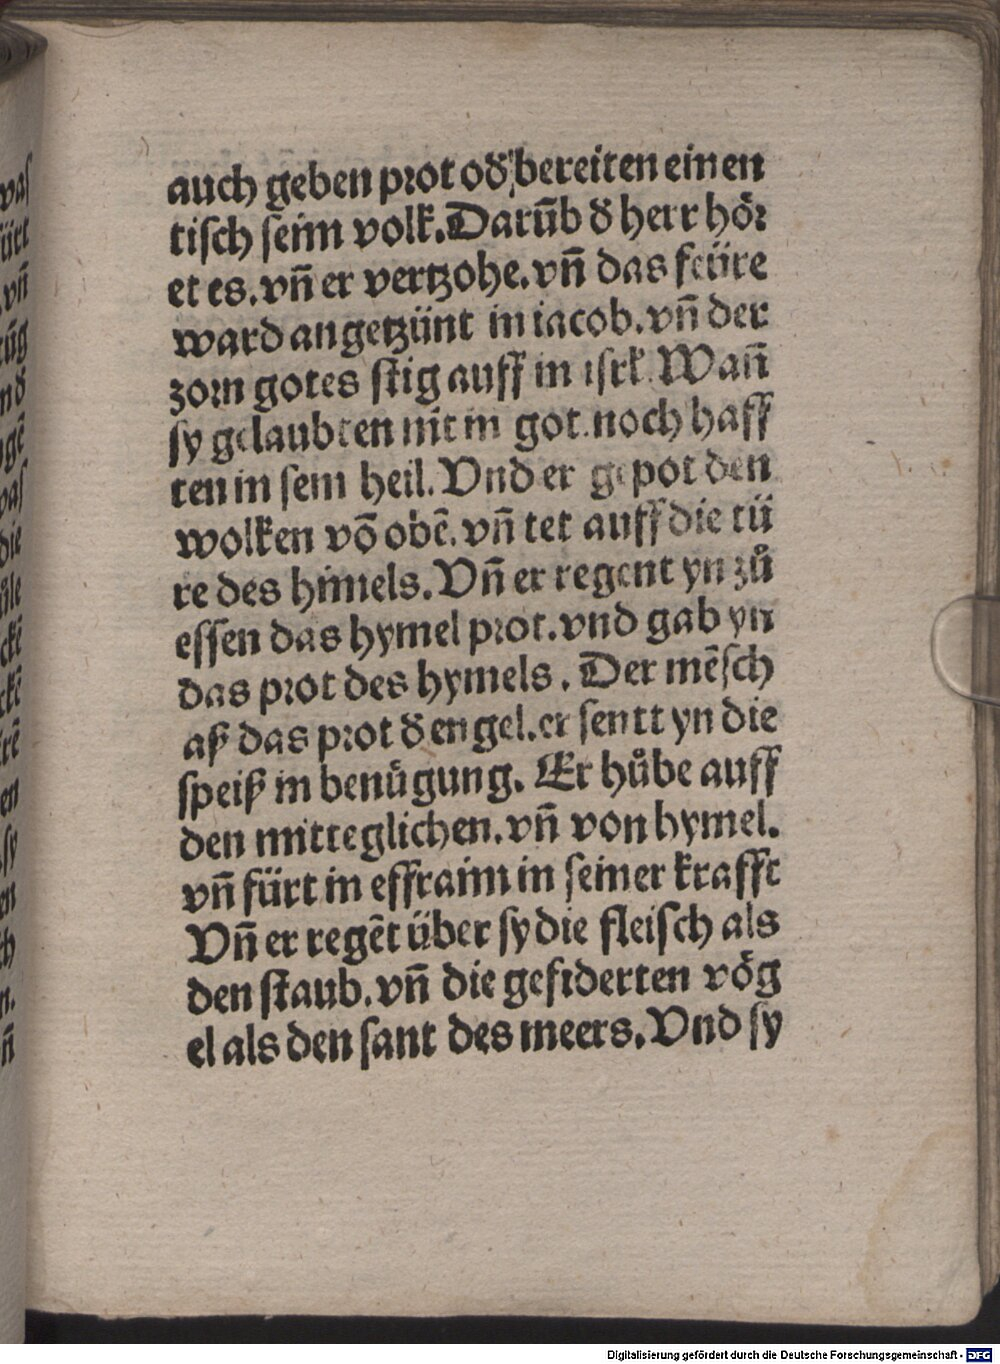 auch geben prot oď bereiten einen
tiſch ſeim volk. Darūb ď herr hör
et es. vn̄ er vertzohe. vn̄ das feüre
ward angetzünt in iacob. vn̄ der
zorn gotes ſtig auff in iſrl. Wan̄
ſy gelaubten nit in got. noch haff
ten in ſein heil. Vnd er gepot den
wolken vō obē. vn̄ tet auff die tü
re des himels. Vn̄ er regent yn zů
eſſen das hymel prot. vnd gab yn
das prot des hymels. Der mēſch
aß das prot ď engel. er ſentt yn die
ſpeiß in benügung. Er hůbe auff
den mitteglichen. vn̄ von hymel.
vn̄ fürt in effraim in ſeiner krafft
Vn̄ er regēt über ſy die fleiſch als
den ſtaub. vn̄ die gefiderten vög
el als den ſant des meers. Vnd ſy
Digitalisierung gefördert durch die Deutsche Forschungsgemeinschaft - DFG